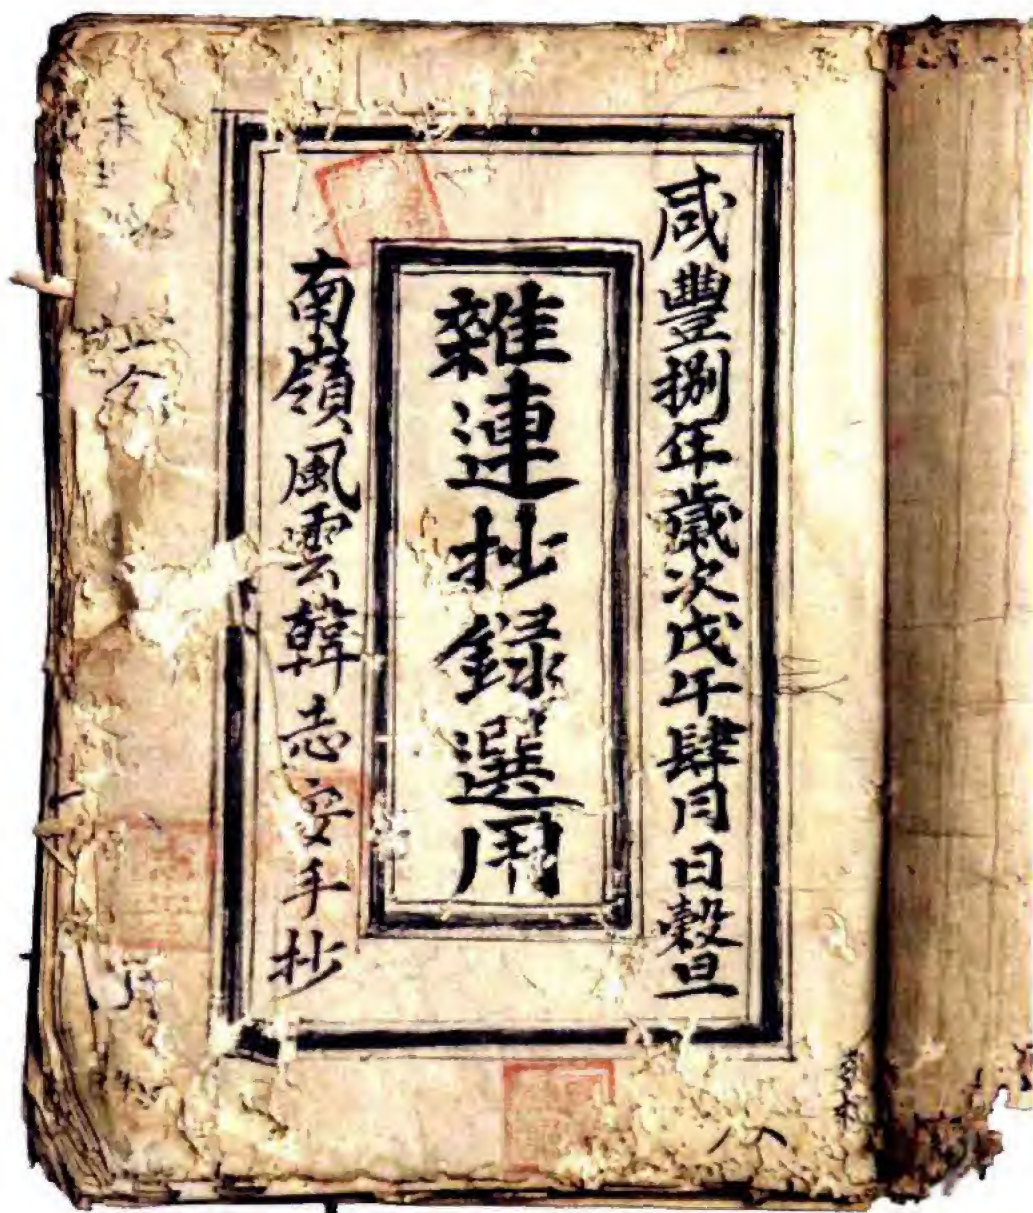 咸豐捌年歲次戊午肆月日穀旦
雜連抄録選用
南嶺風雲韓志安手抄